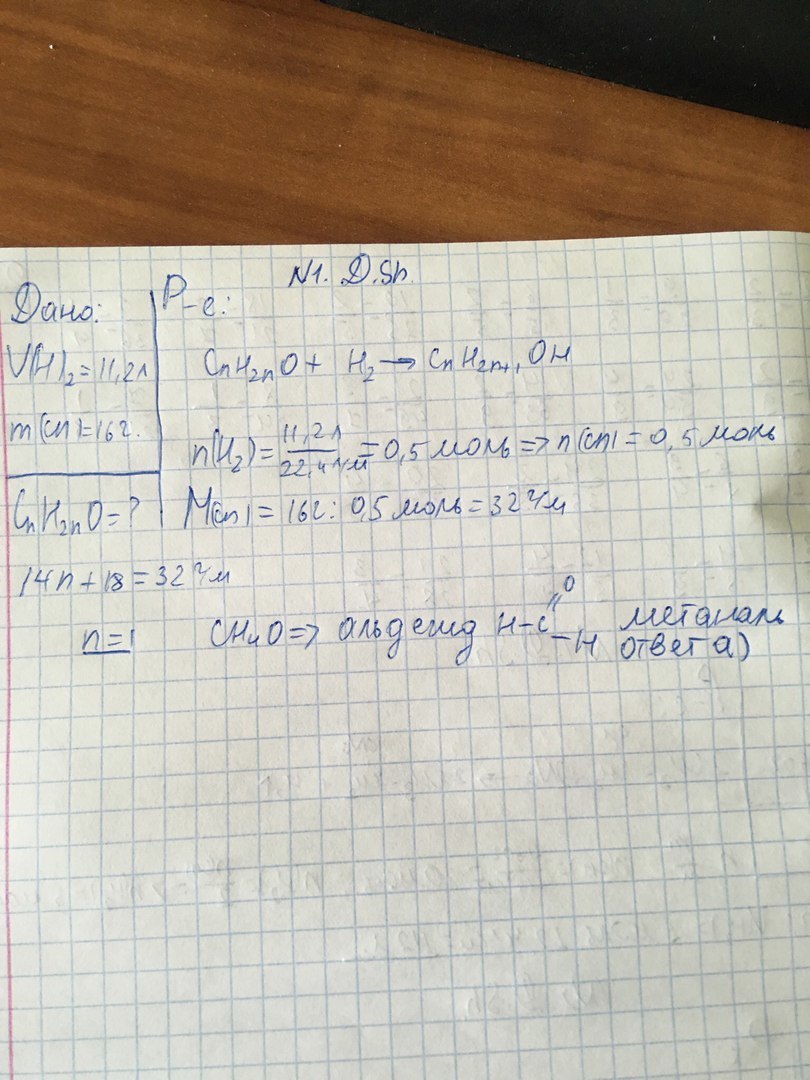 N1. D.Sh.
Дано:
Р-е:
V(H)₂ = 11,2л
CnH2nO + H2 → CnH2n+1OH
m(сп) = 16г.
n(H2) = 11,2л / 22,4 л/м = 0,5 моль => n(сп) = 0,5 моль
CnH2nO = ?
M(сп) = 16г : 0,5 моль = 32 г/м
14n + 18 = 32 г/м
n = 1
CH4O => альдегид H-C=O -H метаналь
ответ а)